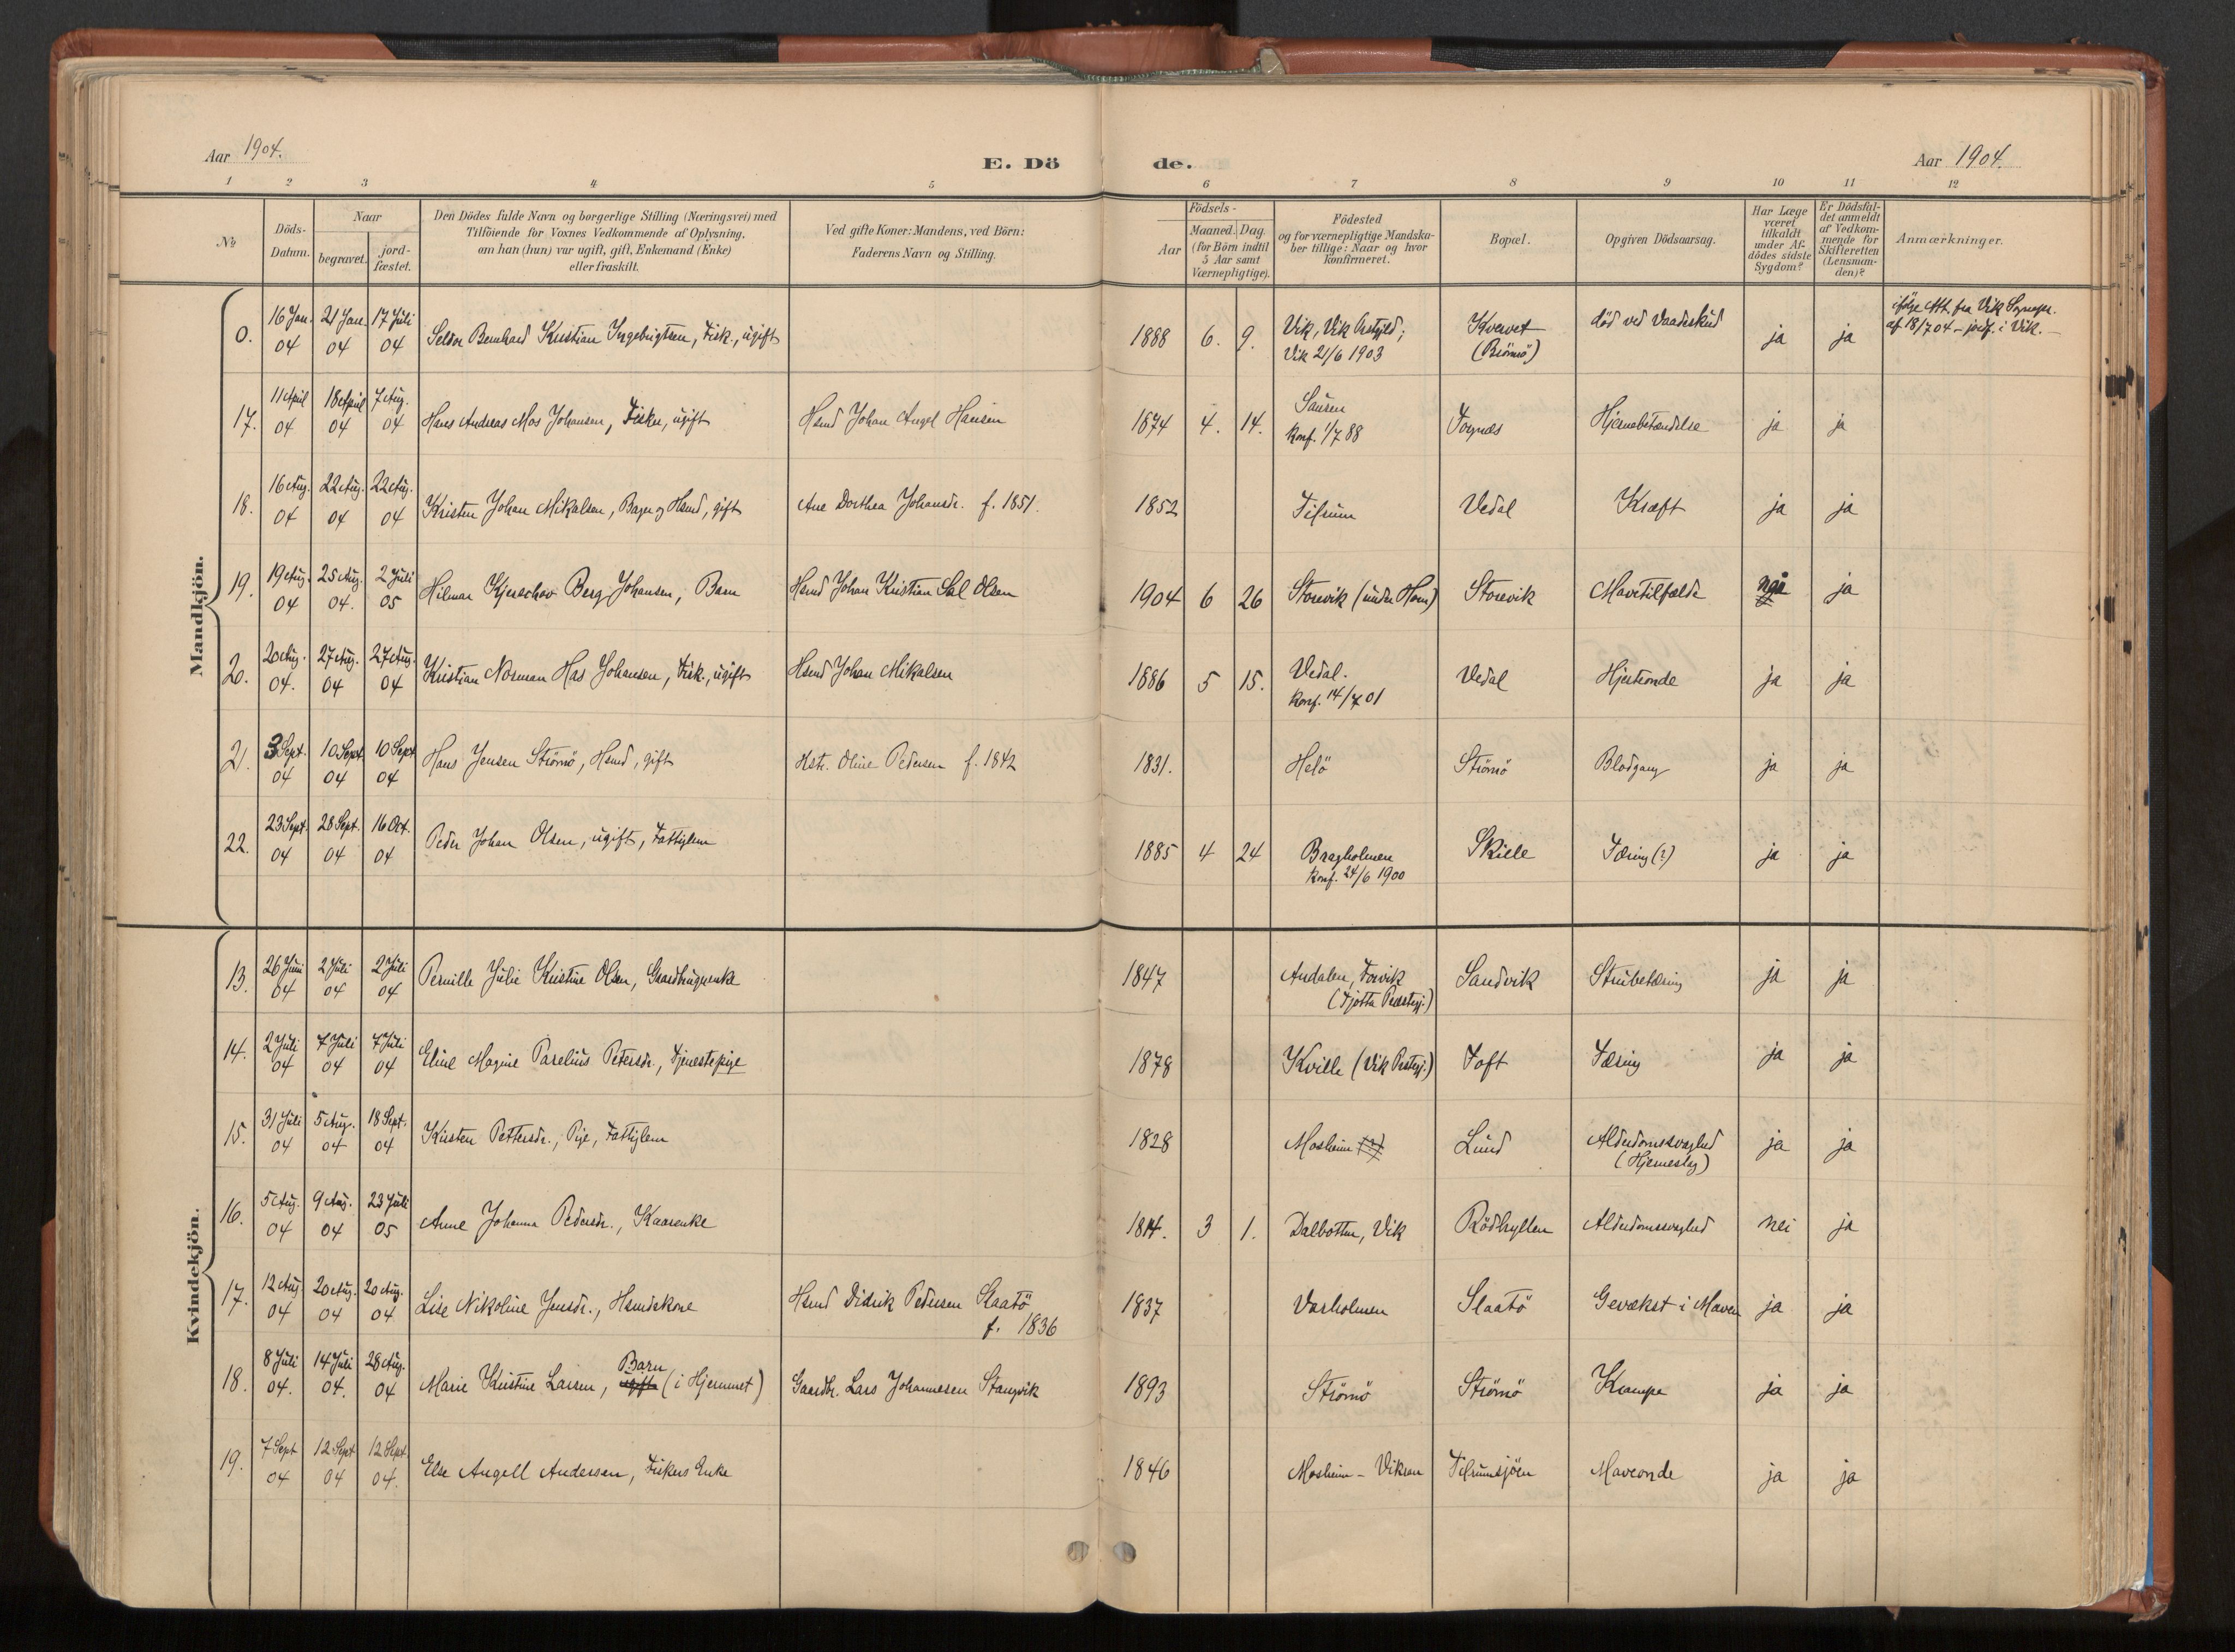 Aar 1904.
E. Dö
de.
Aar 1904.
1 2 3 4 5 6 7 8 9 10 11 12
№
Döds-
Datum.
Naar
begravet.
jord-
fæstet.
Den Dödes fulde Navn og borgerlige Stilling (Næringsvei) med
Tilföiende for Voxnes Vedkommende af Oplysning,
om han (hun) var ugift, gift, Enkemand (Enke)
eller fraskilt.
Ved gifte Koner: Mandens, ved Börn:
Faderens Navn og Stilling.
Födsels-
Aar
Maaned. Dag.
(for Börn indtil
5 Aar samt
Værnepligtige).
Födested
og for værnepligtige Mandska-
ber tillige: Naar og hvor
konfirmeret.
Bopæl.
Opgiven Dödsaarsag.
Har Læge
været
tilkaldt
under Af-
dödes sidste
Sygdom?
Er Dödsfal-
det anmeldt
af Vedkom-
mende for
Skifteretten
(Lensman-
den)?
Anmærkninger.
Mandkjön.
0. 16 Jan. 04 21 Jan. 04 17 Juli 04 Bernhard Kristian Ingebrigtsen, Fisk., ugift 1888 6. 9. Vik, Vik Prstgjld; Kvervet död ved Vaadeskud ja ja
Vik 21/6 1903 (Brönnö)
ifölge Att. fra Vik
af 18/7 04 – jordf. i Vik. –
17. 11 April 04 18 April 04 7 Aug. 04 Hans Andreas Mos Johansen, Fisker, ugift Hsmd Johan Angel Hansen 1874 4. 14. Sausen Hjernebetændelse ja ja
Konf. 1/7 88
18. 16 Aug. 04 22 Aug. 04 22 Aug. 04 Kristen Johan Mikalsen, Hsmd, gift Ane Dorthea Johansdr. f. 1851. 1852 Tilrum Vedal Kræft ja ja
19. 19 Aug. 04 25 Aug. 04. 2 Juli 05 Hilmar Kjerschov Berg Johansen, Barn Hsmd Johan Kristian Sal Olsen 1904 6 26 Storevik (under Horn) Storevik Mavetilfælde ja
20. 20 Aug. 04. 27 Aug. 04 27 Aug. 04 Kristian Norman Has Johansen, Fisk., ugift Hsmd Johan Mikalsen 1886 5 15. Vedal. Vedal Hjerteonde ja ja
Konf. 14/7 01
21. 3 Sept. 04 10 Sept 04 10 Sept 04 Hans Jensen Strömö, Hsmd, gift Hstr. Oline Pedersen f. 1842 1831. Helö Strömö Blodgang ja ja
22. 23 Sept. 04 28 Sept. 04 16 Oct. 04 Peder Johan Olsen, ugift, Fattiglem 1885 4 24 Bragholmen Skille Tæring (?) ja ja
Konf. 24/6 1900
Kvindekjön.
13. 26 Juni 04 2 Juli 04 2 Juli 04 Pernille Julie Kristine Olsen, Gaardbrugenke 1847 Andalen, Forvik Sandvik Strubetæring ja ja
(Tjötta Præstegj.)
14. 2 Juli 04 7 Juli 04 7 Juli 04 Eline Magine Parelius Petersdr., Tjenestepige 1878 Kville (Vik Prstgj.) Toft Tæring ja ja
15. 31 Juli 04 5 Aug. 04 18 Sept. 04 Kirsten Pettersdr., Pige, Fattiglem 1828 Mosheim (?) Lund Alderdomssvaghed ja ja
(Hjerneslag)
16. 5 Aug. 04 9 Aug. 04 23 Juli 05 Anne Johanna Pedersdr., Kaarenke 1814. 3 1. Dalbotten, Vik Rödhyllen Alderdomssvaghed nei ja
17. 12 Aug. 04 20 Aug. 04 20 Aug. 04 Lise Nikoline Jensdr., Hsmdskone Hsmd Didrik Pedersen Slaatö 1837 Varholmen Slaatö Gevækst i Maven ja ja
f. 1836
18. 8 Juli 04. 14 Juli 04. 28 Aug. 04 Marie Kristine Larsen, ugift Barn (i Hjemmet) Gaardbr. Lars Johannesen Stangvik 1893 Strömö Strömö Krampe ja ja
19. 7 Sept 04 12 Sept 04 12 Sept. 04. Else Angell Andersen, Fiskers Enke 1846 Mosheim – Viksen Tilrumsjöen Maveonde ja ja